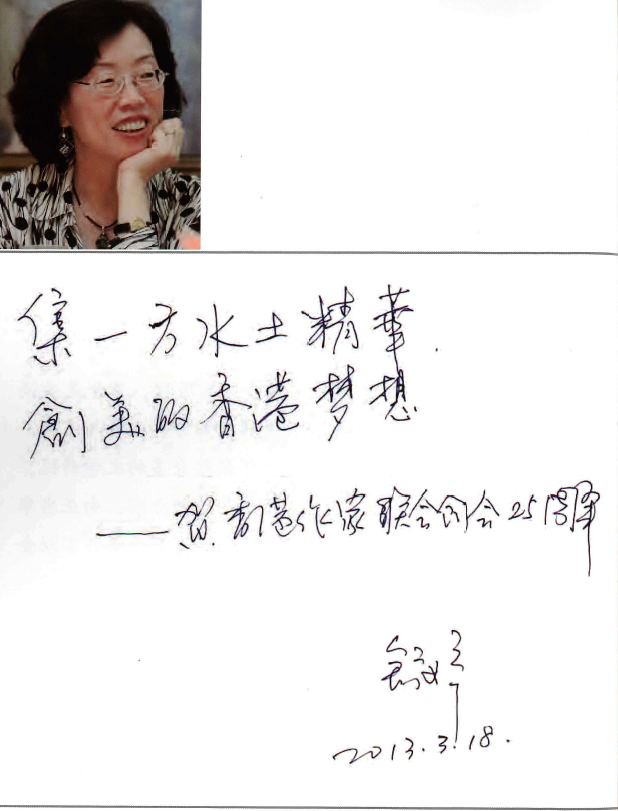 集一方水土精華.
創美的香港梦想
——贺香港作家联会创会25周年
2013.3.18.